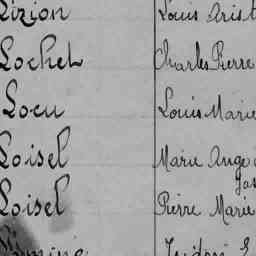 Lizion Louis Arist
Lochet Charles Pierre
Locu Louis Marie
Loisel Marie Ange
Loisel Pierre Marie
Isidore